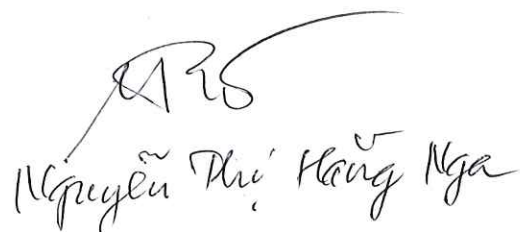 Nguyễn Thị Hằng Nga